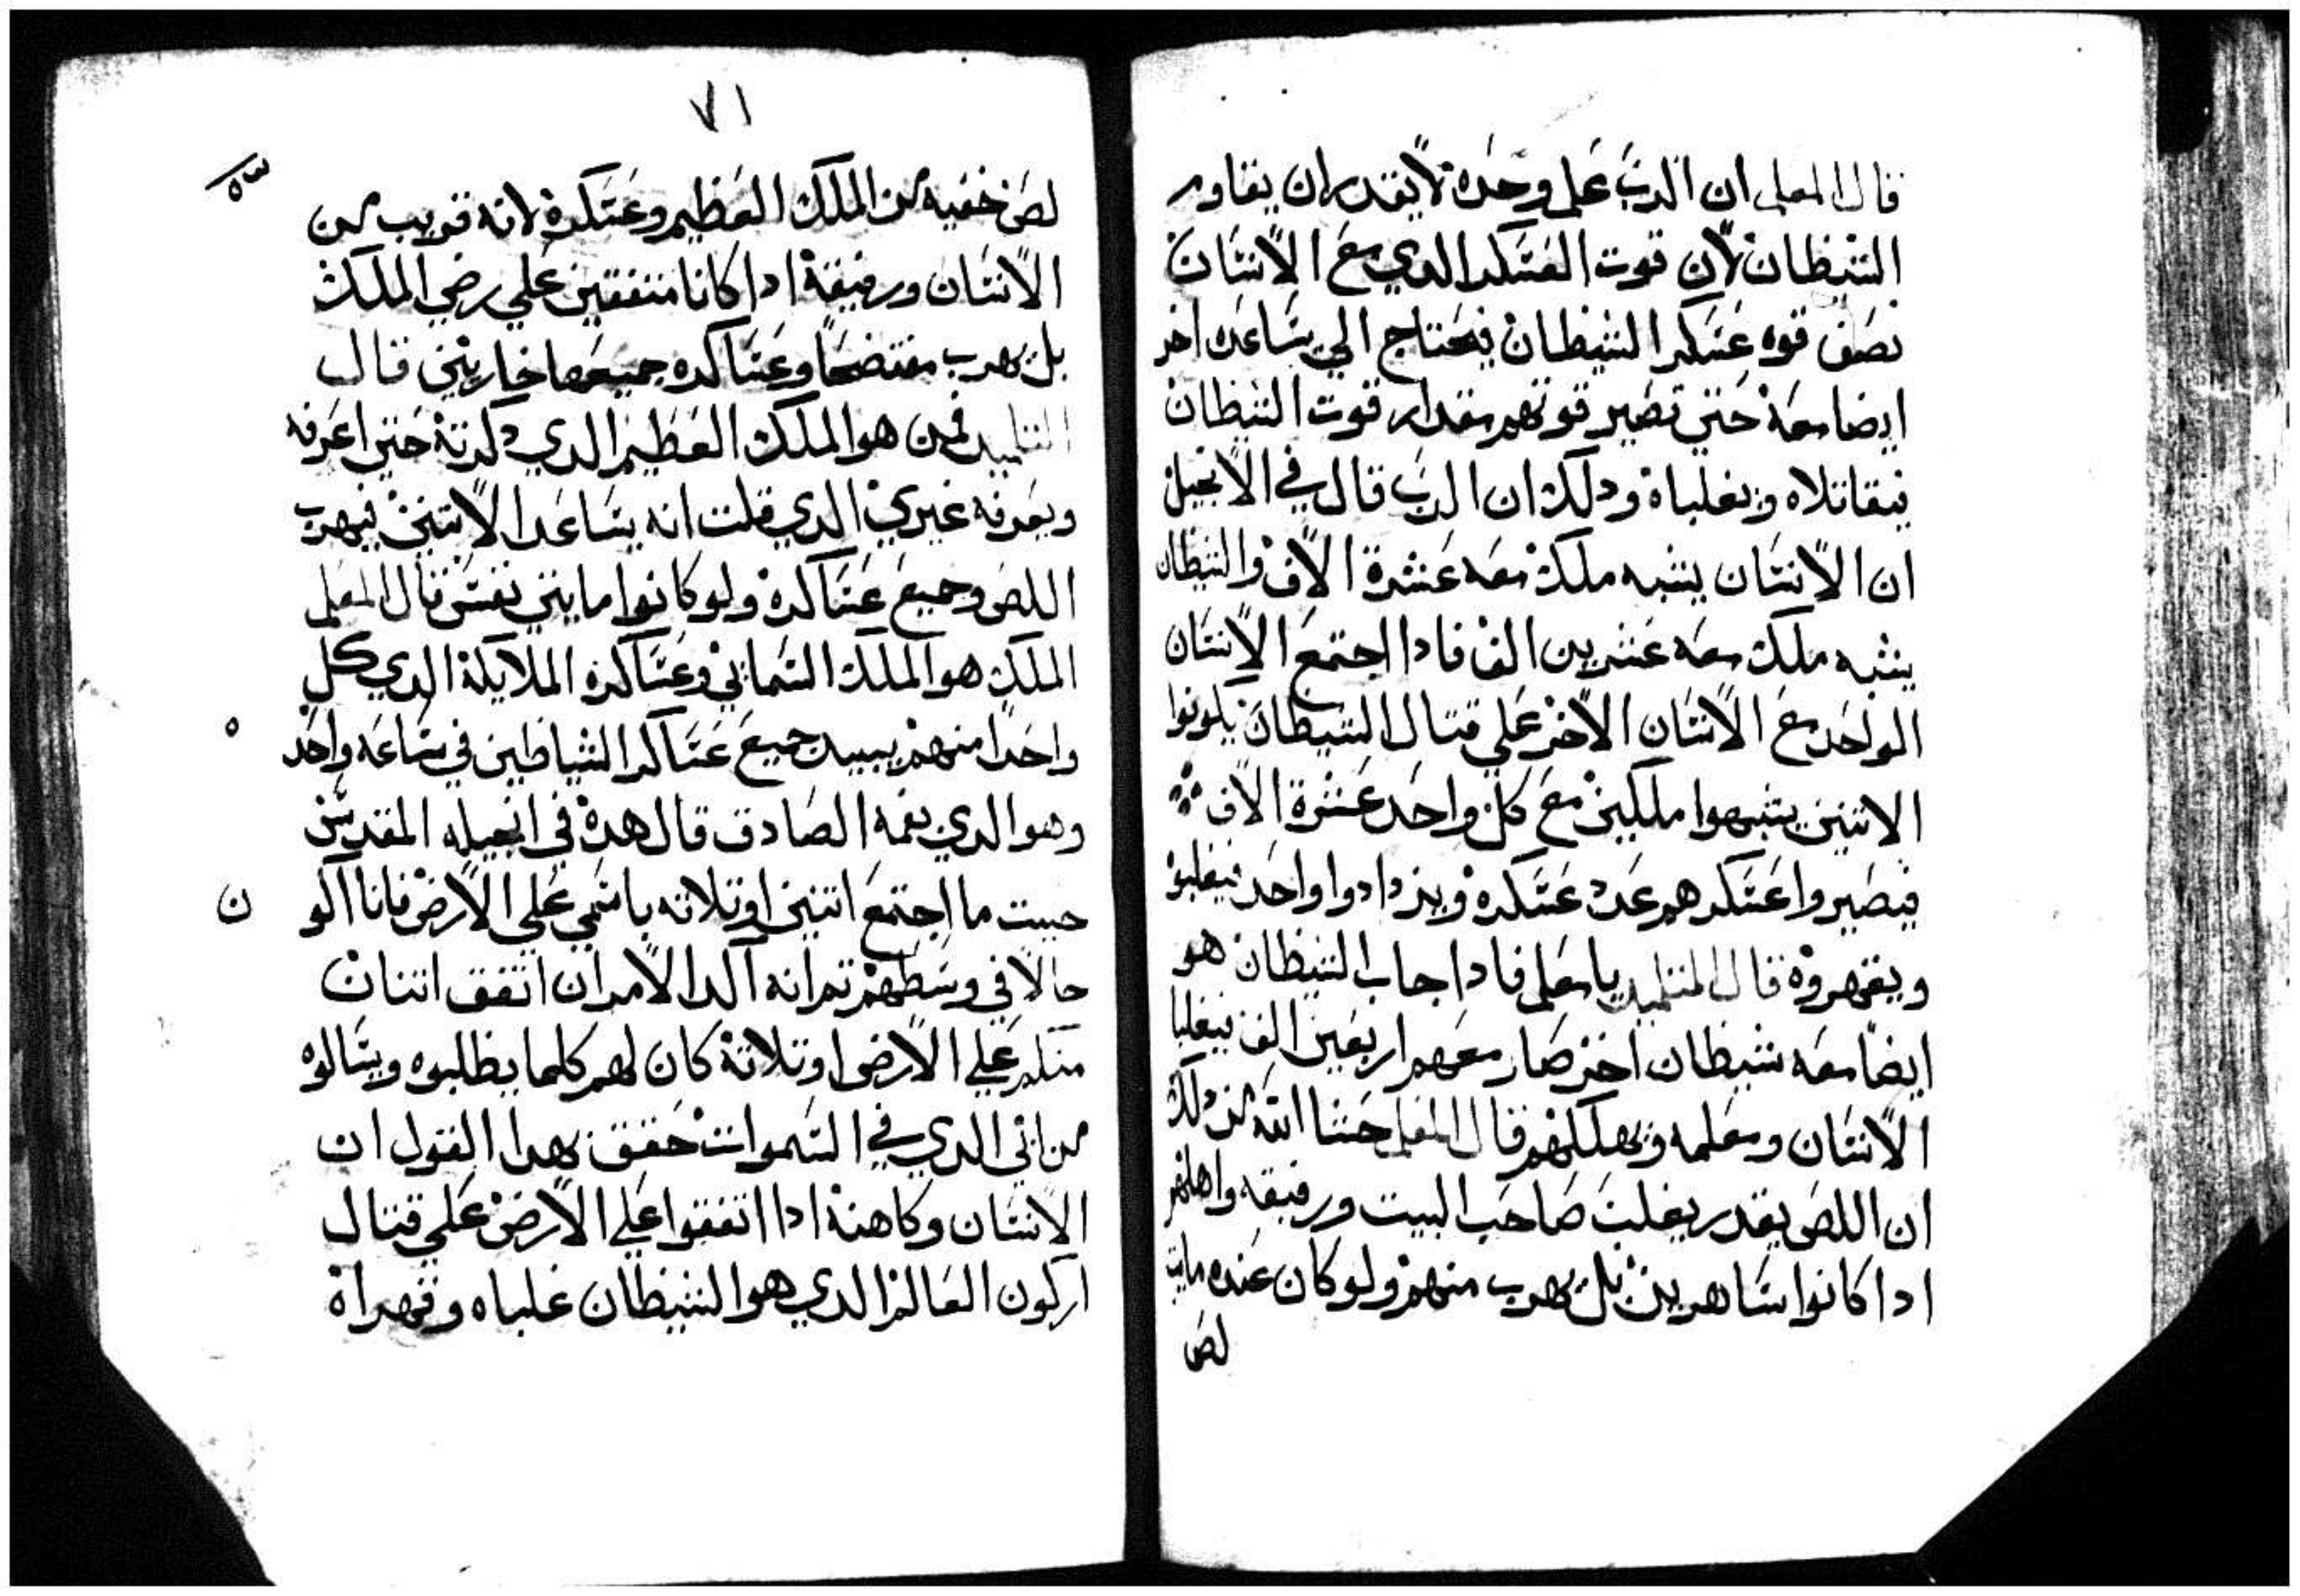 قال المعلم ان الدي علي وحده لا يقدر ان يقاوم
الشيطان لان قوت العسكر الدي مع الانسان
نصف قوه عسكر الشيطان فيحتاج الي يساعده اخر
ايضا معه حتي تصير قوتهم مقدار قوت الشيطان
فيقاتلاه ويغلباه ودلك ان الرب قال في الانجيل
ان الانسان يشبه ملك معه عشرة الاف والشيطان
يشبه ملك معه عشرين الف فادا اجتمع الانسان
الواحد مع الانسان الاخر علي قتال الشيطان يكونوا
الاتنين يشبهوا ملكين مع كل واحد عشرة الاف
فيصيروا عسكرهم عدد عسكره ويزدادوا واحد فيغلبوه
ويقهروه قال التلميد يا معلم فادا جاب الشيطان هو
ايضا معه شيطان اخر صار معهم اربعين الف فيغلبا
الانسان ومعلمه ويهلكهم قال المعلم حشا الله من دلك
ان اللص يقدر يغلب صاحب البيت ورفيقه واهلهم
ادا كانوا ساهرين بل يهرب منهم ولو كان عنده مايت
لص
٧١
لص خفيه من الملك العظيم وعسكره لانه قريب من
الانسان ورفيقه ادا كانا متفقين علي رضي الملك
بل يهرب مفتضحا وعساكره جميعها خازيين قال
التلميد فمن هو الملك العظيم الدي دكرته حتي اعرفه
ويعرفه غيري الدي قلت انه يساعد الاتنين فيهرب
اللص وجميع عساكره ولو كانوا مايتي نفس قال المعلم
الملك هو الملك السماني وعساكره الملايكة الدي كل
واحدا منهم يبيد جميع عساكر الشياطين في ساعه واحده
وهو الدي بفمه الصادق قال هده في انجيله المقدس
حيت ما اجتمع اتنين او تلاته باسمي علي الارض فانا اكون
حالا في وسطهم تم انه اكد الامر ان اتفق اتنان
منكم علي الارض او تلاتة كان لهم كلما يطلبوه ويسالوه
من ابي الدي في السموات حقق بهدا القول ان
الانسان وكاهنه ادا اتفقوا علي الارض علي قتال
اركون العالم الدي هو الشيطان غلباه وقهراه